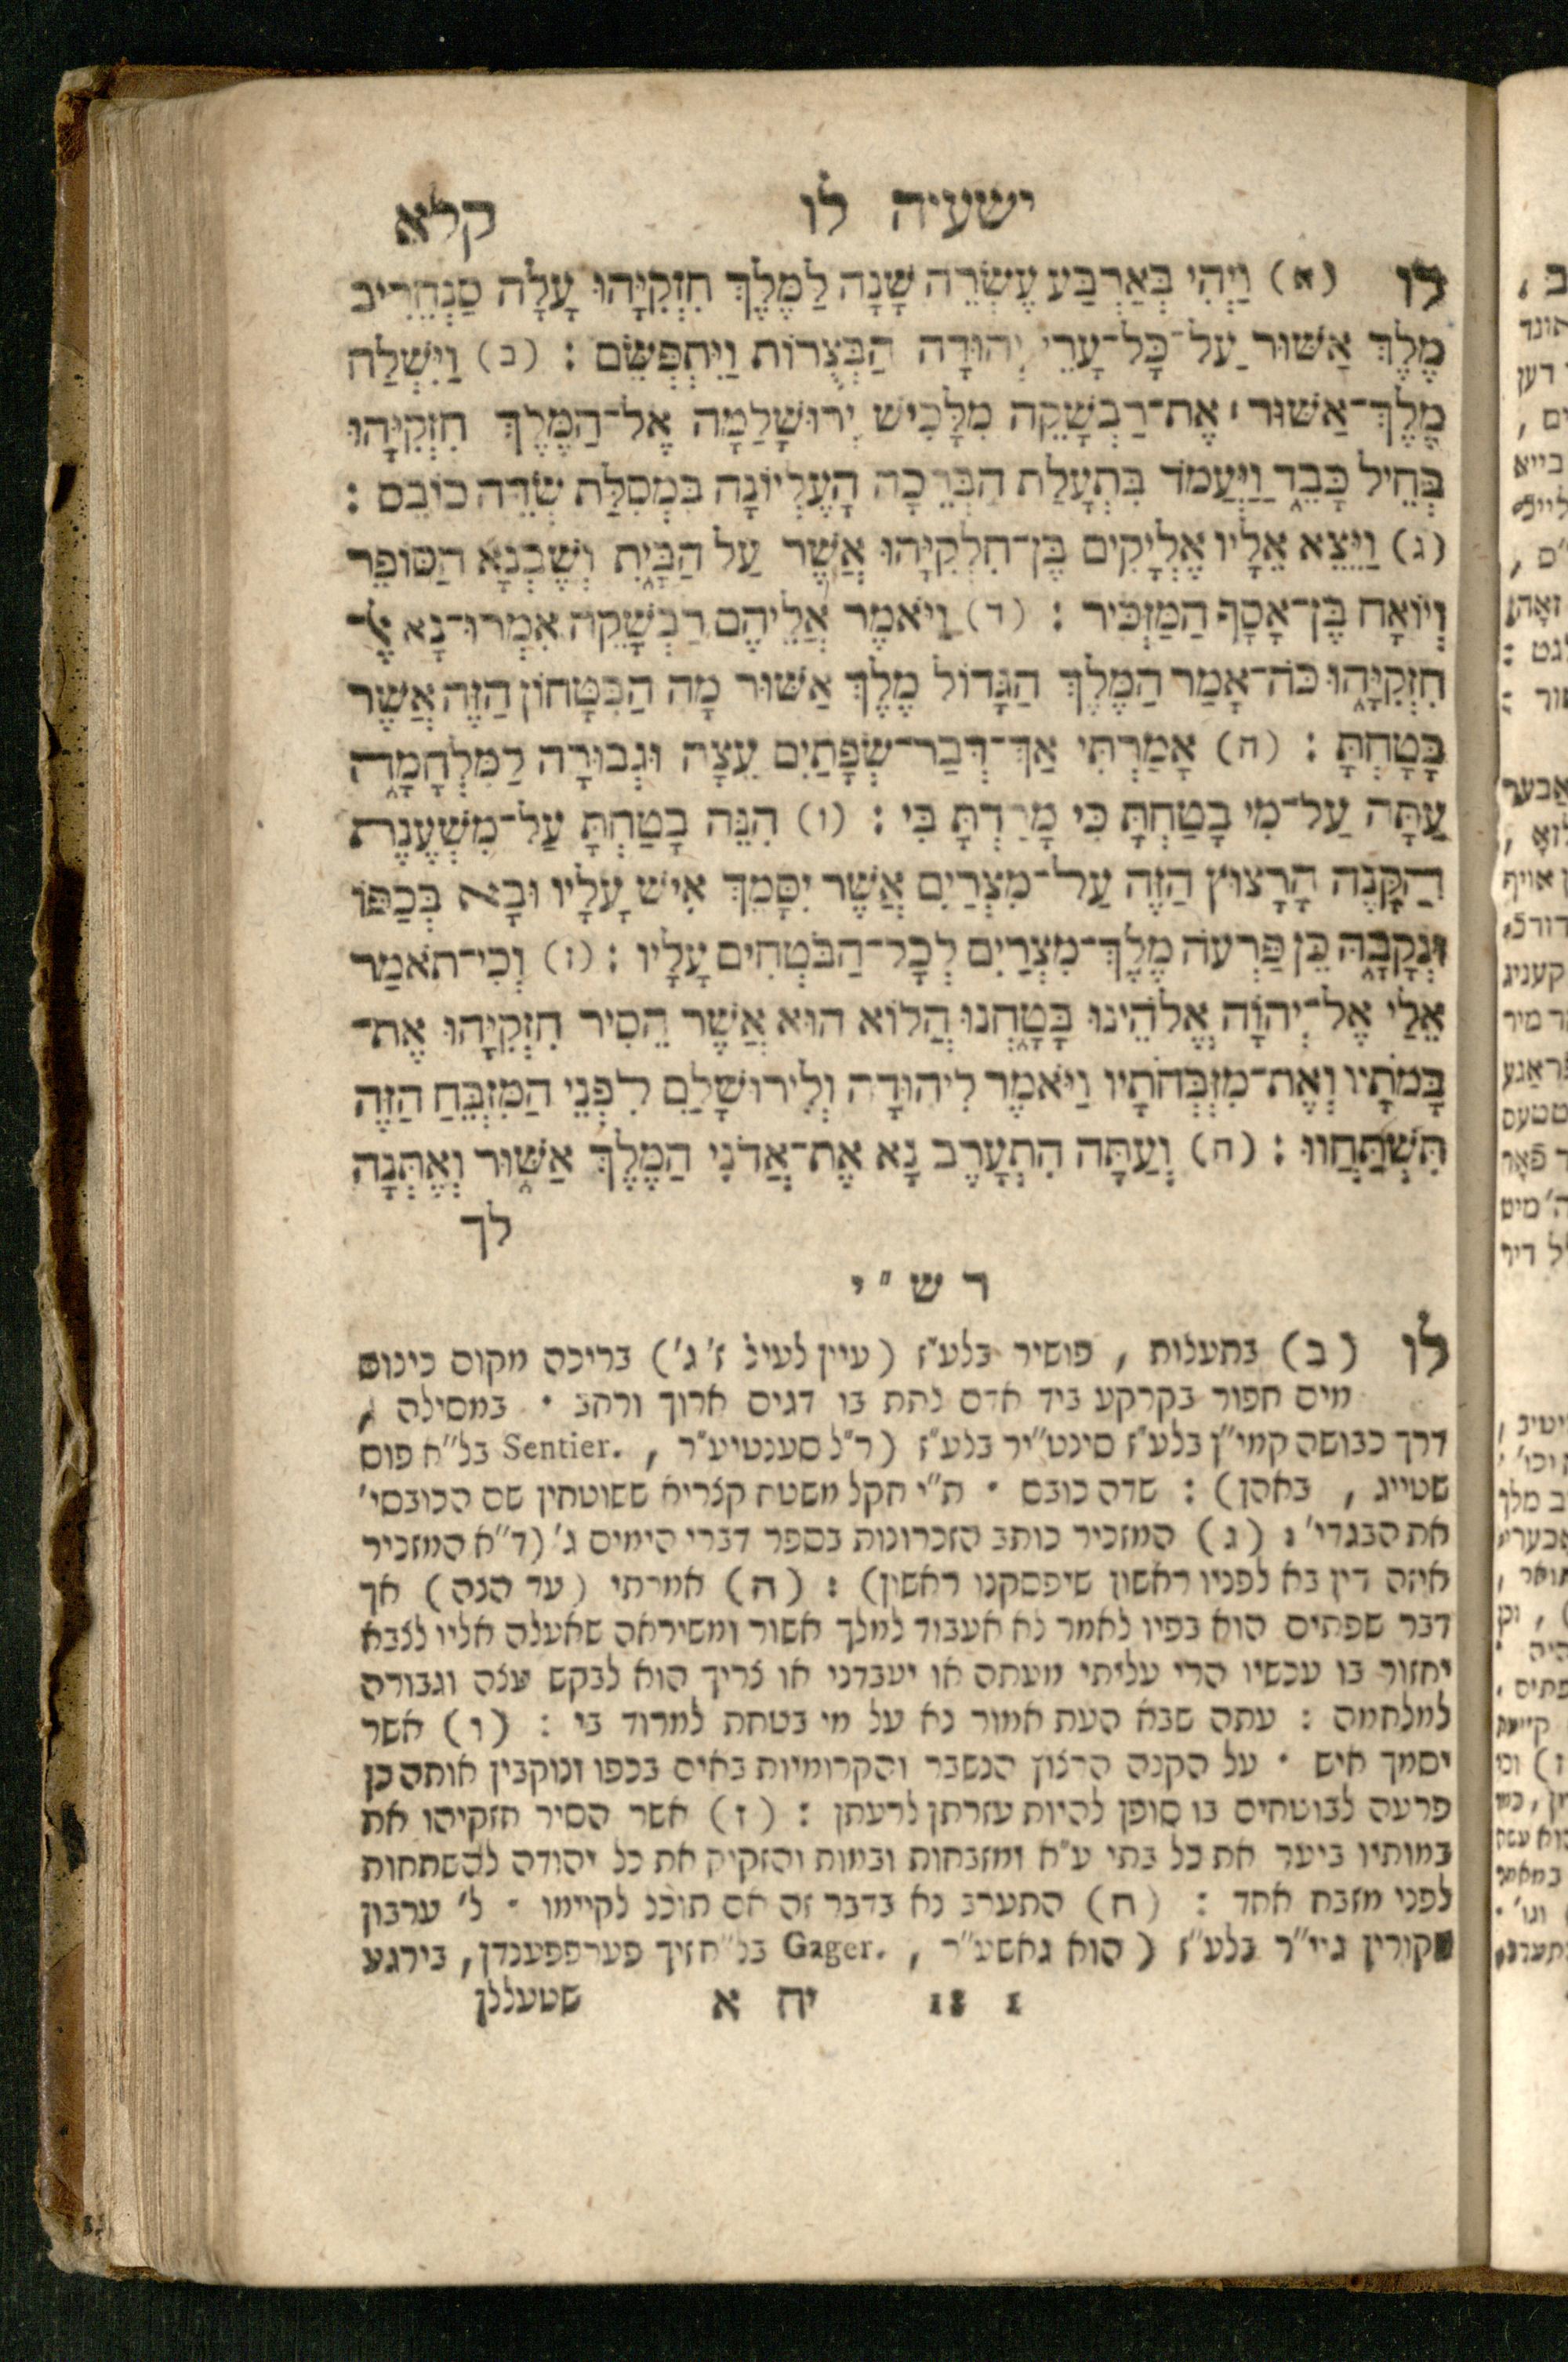 ישעיה לו קלא
לו (א) וַיְהִי בְּאַרְבַּע עֶשְׂרֵה שָׁנָה לַמֶּלֶךְ חִזְקִיָּהוּ עָלָה סַנְחֵרִיב
מֶלֶךְ אַשּׁוּר עַל־כָּל־עָרֵי יְהוּדָה הַבְּצֻרוֹת וַיִּתְפְּשֵׂם : (ב) וַיִּשְׁלַח
מֶלֶךְ־אַשּׁוּר׀ אֶת־רַבְשָׁקֵה מִלָּכִישׁ יְרוּשָׁלַמָה אֶל־הַמֶּלֶךְ חִזְקִיָּהוּ
בְּחֵיל כָּבֵד וַיַּעֲמֹד בִּתְעָלַת הַבְּרֵכָה הָעֶלְיוֹנָה בִּמְסִלַּת שְׂדֵה כוֹבֵס :
(ג) וַיֵּצֵא אֵלָיו אֶלְיָקִים בֶּן־חִלְקִיָּהוּ אֲשֶׁר עַל הַבָּיִת וְשֶׁבְנָא הַסּוֹפֵר
וְיוֹאָח בֶּן־אָסָף הַמַּזְכִּיר : (ד) וַיֹּאמֶר אֲלֵיהֶם רַבְשָׁקֵה אִמְרוּ־נָא אֶל־
חִזְקִיָּהוּ כֹּה־אָמַר הַמֶּלֶךְ הַגָּדוֹל מֶלֶךְ אַשּׁוּר מָה הַבִּטָּחוֹן הַזֶּה אֲשֶׁר
בָּטָחְתָּ : (ה) אָמַרְתִּי אַךְ־דְּבַר־שְׂפָתַיִם עֵצָה וּגְבוּרָה לַמִּלְחָמָה
עַתָּה עַל־מִי בָטַחְתָּ כִּי מָרַדְתָּ בִּי : (ו) הִנֵּה בָטַחְתָּ עַל־מִשְׁעֶנֶת
הַקָּנֶה הָרָצוּץ הַזֶּה עַל־מִצְרַיִם אֲשֶׁר יִסָּמֵךְ אִישׁ עָלָיו וּבָא בְכַפּוֹ
וּנְקָבָהּ כֵּן פַּרְעֹה מֶלֶךְ־מִצְרַיִם לְכָל־הַבֹּטְחִים עָלָיו : (ז) וְכִי־תֹאמַר
אֵלַי אֶל־יְהוָֹה אֱלֹהֵינוּ בָּטָחְנוּ הֲלוֹא הוּא אֲשֶׁר הֵסִיר חִזְקִיָּהוּ אֶת־
בָּמֹתָיו וְאֶת־מִזְבְּחֹתָיו וַיֹּאמֶר לִיהוּדָה וְלִירוּשָׁלַםִ לִפְנֵי הַמִּזְבֵּחַ הַזֶּה
תִּשְׁתַּחֲווּ : (ח) וְעַתָּה הִתְעָרֶב נָא אֶת־אֲדֹנִי הַמֶּלֶךְ אַשּׁוּר וְאֶתְּנָה
לך
רש״י
לו (ב) בתעלות , פושיר בלע״ז (עיין לעיל ז׳ ג׳) בריכה מקום כינוס
מים חפור בקרקע ביד אדם לתת בו דגים ארוך ורחב · במסילה ,
דרך כבושה קמי״ן בלע״ז סינט״יר בלע״ז (ר״ל סענטיע״ר , Sentier. בל״א פוס
שטייג , באהן) : שדה כובס · ת״י חקל משטח קצריא ששוטחין שם הכובסי׳
את הבגדי׳ : (ג) המזכיר כותב הזכרונות בספר דברי הימים ג׳ (ד״א המזכיר
איזה דין בא לפניו ראשון שיפסקנו ראשין) : (ה) אמרתי (עד הנה) אך
דבר שפתים הוא בפיו לאמר לא אעבוד למלך אשור ומשיראה שאעלה אליו לצבא
יחזור בו עכשיו הרי עליתי מעתה או יעבדני או צריך הוא לבקש עצה וגבורה
למלחמה : עתה שבא העת אמור נא על מי בטחת למרוד בי : (ו) אשר
יסמך איש · על הקנה הרצון הנשבר והקרומיות באים בכפו ונוקבין אותה כן
פרעה לבוטחים בו סופן להיות עזרתן לרעתן : (ז) אשר הסיר חזקיהו את
במותיו ביער את כל בתי ע״א ומזבחות ובמות והזקיק את כל יהודה להשתחות
לפני מזבח אחד : (ח) התערב נא בדבר זה אם תוכל לקיימו · ל׳ ערבון
שקורין גיי״ר בלע״ז (הוא גאשע״ר , Gager. בל״א זיך פערפפענדן, בירגע
שטעללן יח א 18 1